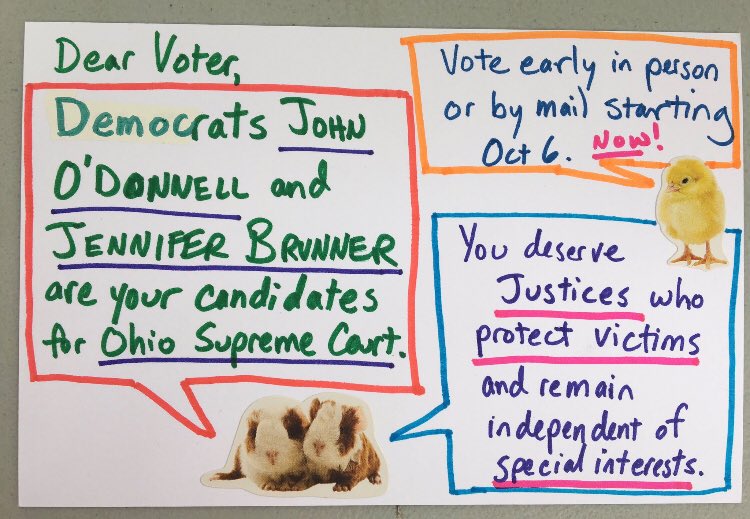 Dear Voter,
Democrats JOHN
O'DONNELL and
JENNIFER BRUNNER
are your candidates
for Ohio Supreme Court.
Vote early in person
or by mail starting
Oct 6. Now!
You deserve
Justices who
protect victims
and remain
independent of
special interests.